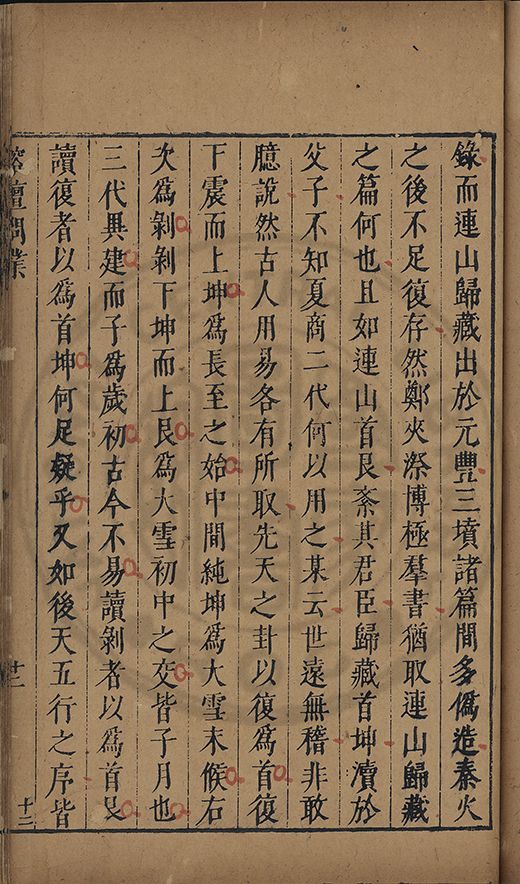 錄而連山歸藏出於元豐三墳諸篇間多僞造秦火
之後不足復存然鄭夾漈博極羣書猶取連山歸藏
之篇何也且如連山首艮紊其君臣歸藏首坤瀆於
父子不知夏商二代何以用之某云世遠無稽非敢
臆說然古人用易各有所取先天之卦以復爲首復
下震而上坤爲長至之始中間純坤爲大雪末候右
次爲剝剝下坤而上艮爲大雪初中之交皆子月也
三代異建而子爲歲初古今不易讀剝者以爲首艮
讀復者以爲首坤何足疑乎又如後天五行之序皆
榕壇問業
十二